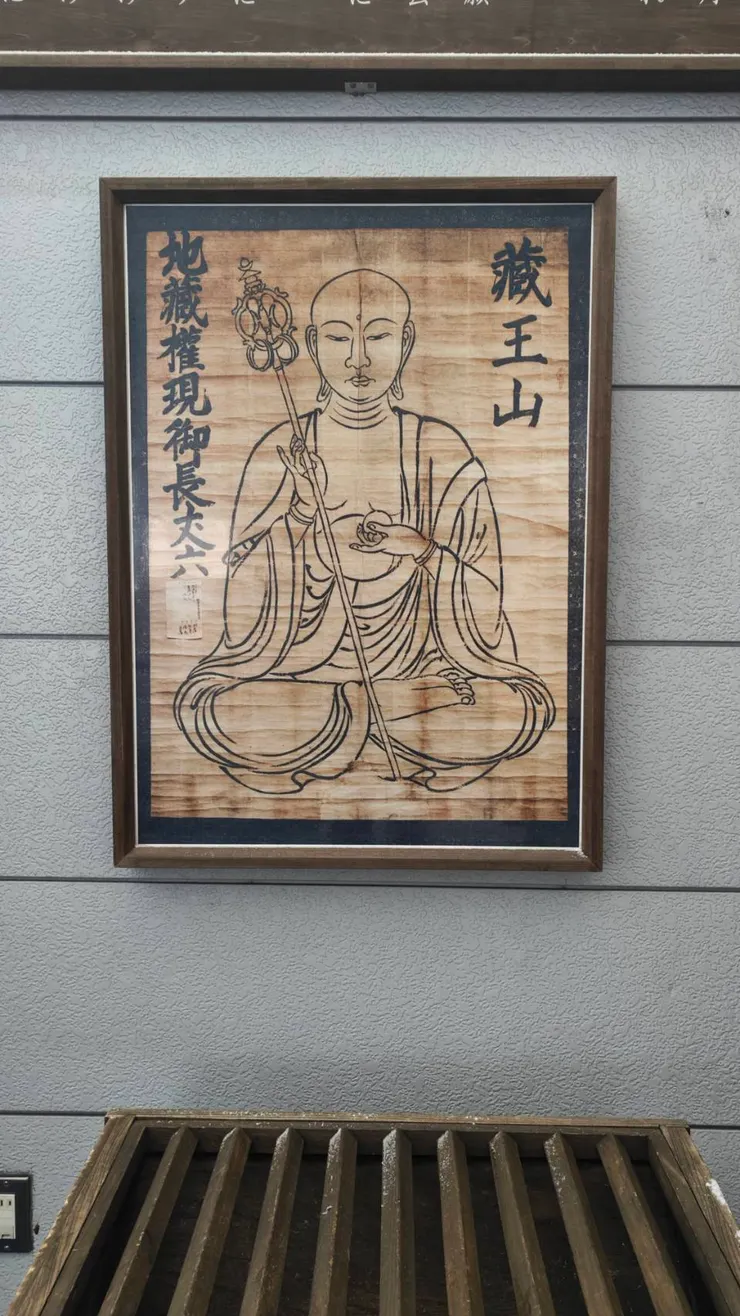 藏王山
地藏權現御長丈六